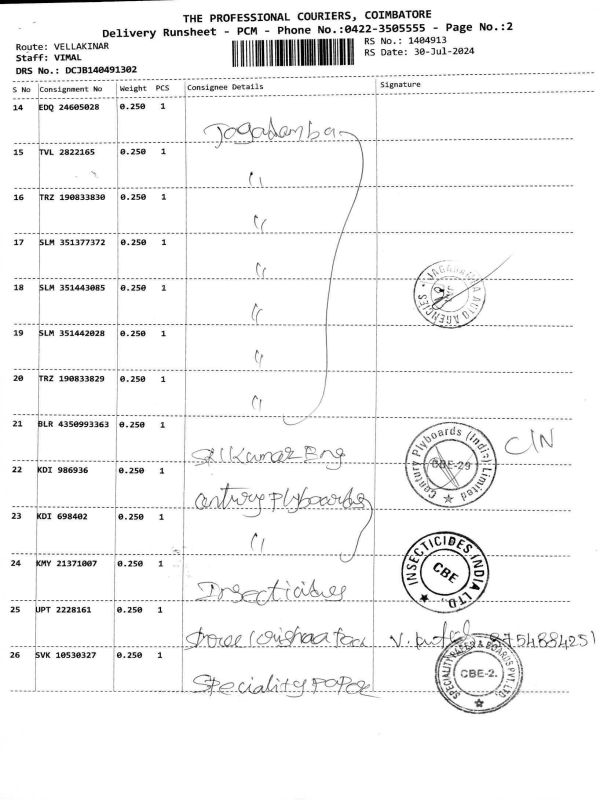 THE PROFESSIONAL COURIERS, COIMBATORE
Delivery Runsheet - PCM - Phone No.:0422-3505555 - Page No.:2
Route: VELLAKINAR
RS No.: 1404913
Staff: VIMAL
RS Date: 30-Jul-2024
DRS No.: DCJB140491302
S No Consignment No Weight PCS Consignee Details Signature
14 EDQ 24605028 0.250 1
Jagadamba
15 TVL 2822165 0.250 1
"
16 TRZ 190833830 0.250 1
"
17 SLM 351377372 0.250 1
"
18 SLM 351443085 0.250 1
"
JAGADAMBA AUTO AGENCIES
19 SLM 351442028 0.250 1
"
20 TRZ 190833829 0.250 1
"
21 BLR 4350993363 0.250 1
Kumar Eng
Century Plyboards (India) Limited
CBE-29
C/N
22 KDI 986936 0.250 1
Century Plyboards
23 KDI 698402 0.250 1
"
24 KMY 21371007 0.250 1
Insecticides
INSECTICIDES INDIA LTD.
CBE
25 UPT 2228161 0.250 1
8754884251
26 SVK 10530327 0.250 1
Speciality Paper
SPECIALITY PAPER & BOARDS PVT. LTD.
CBE-2.